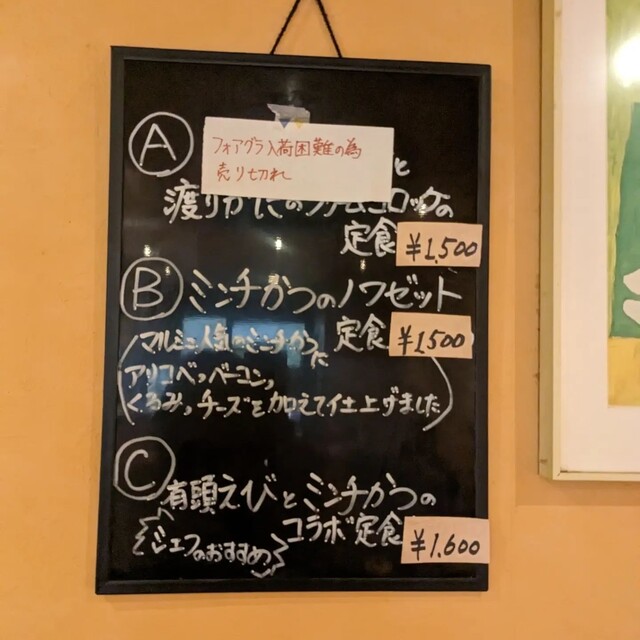 Ⓐ
フォアグラ入荷困難の為
売り切れ
と
渡りがにのクリームコロッケの
定食 ¥1,500
Ⓑ ミンチかつのノワゼット
定食 ¥1500
(マルミヤ人気のミンチかつに
アリコベ、ベーコン、
くるみ、チーズを加えて仕上げました)
Ⓒ
有頭えびとミンチかつの
コラボ定食 ¥1,600
シェフのおすすめ